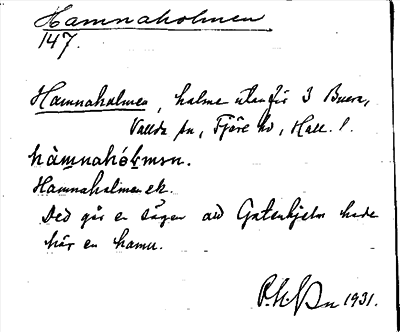 Hamnaholmen
147.
Hamnaholmen, holme utanför 3 Buera,
Vallda sn, Fjäre hd, Hall. l.
hàmnahólmɘn.
Hamnaholmen ek.
Ded går en sägen att Gatenhjelm hade
här en hamn.
1931.